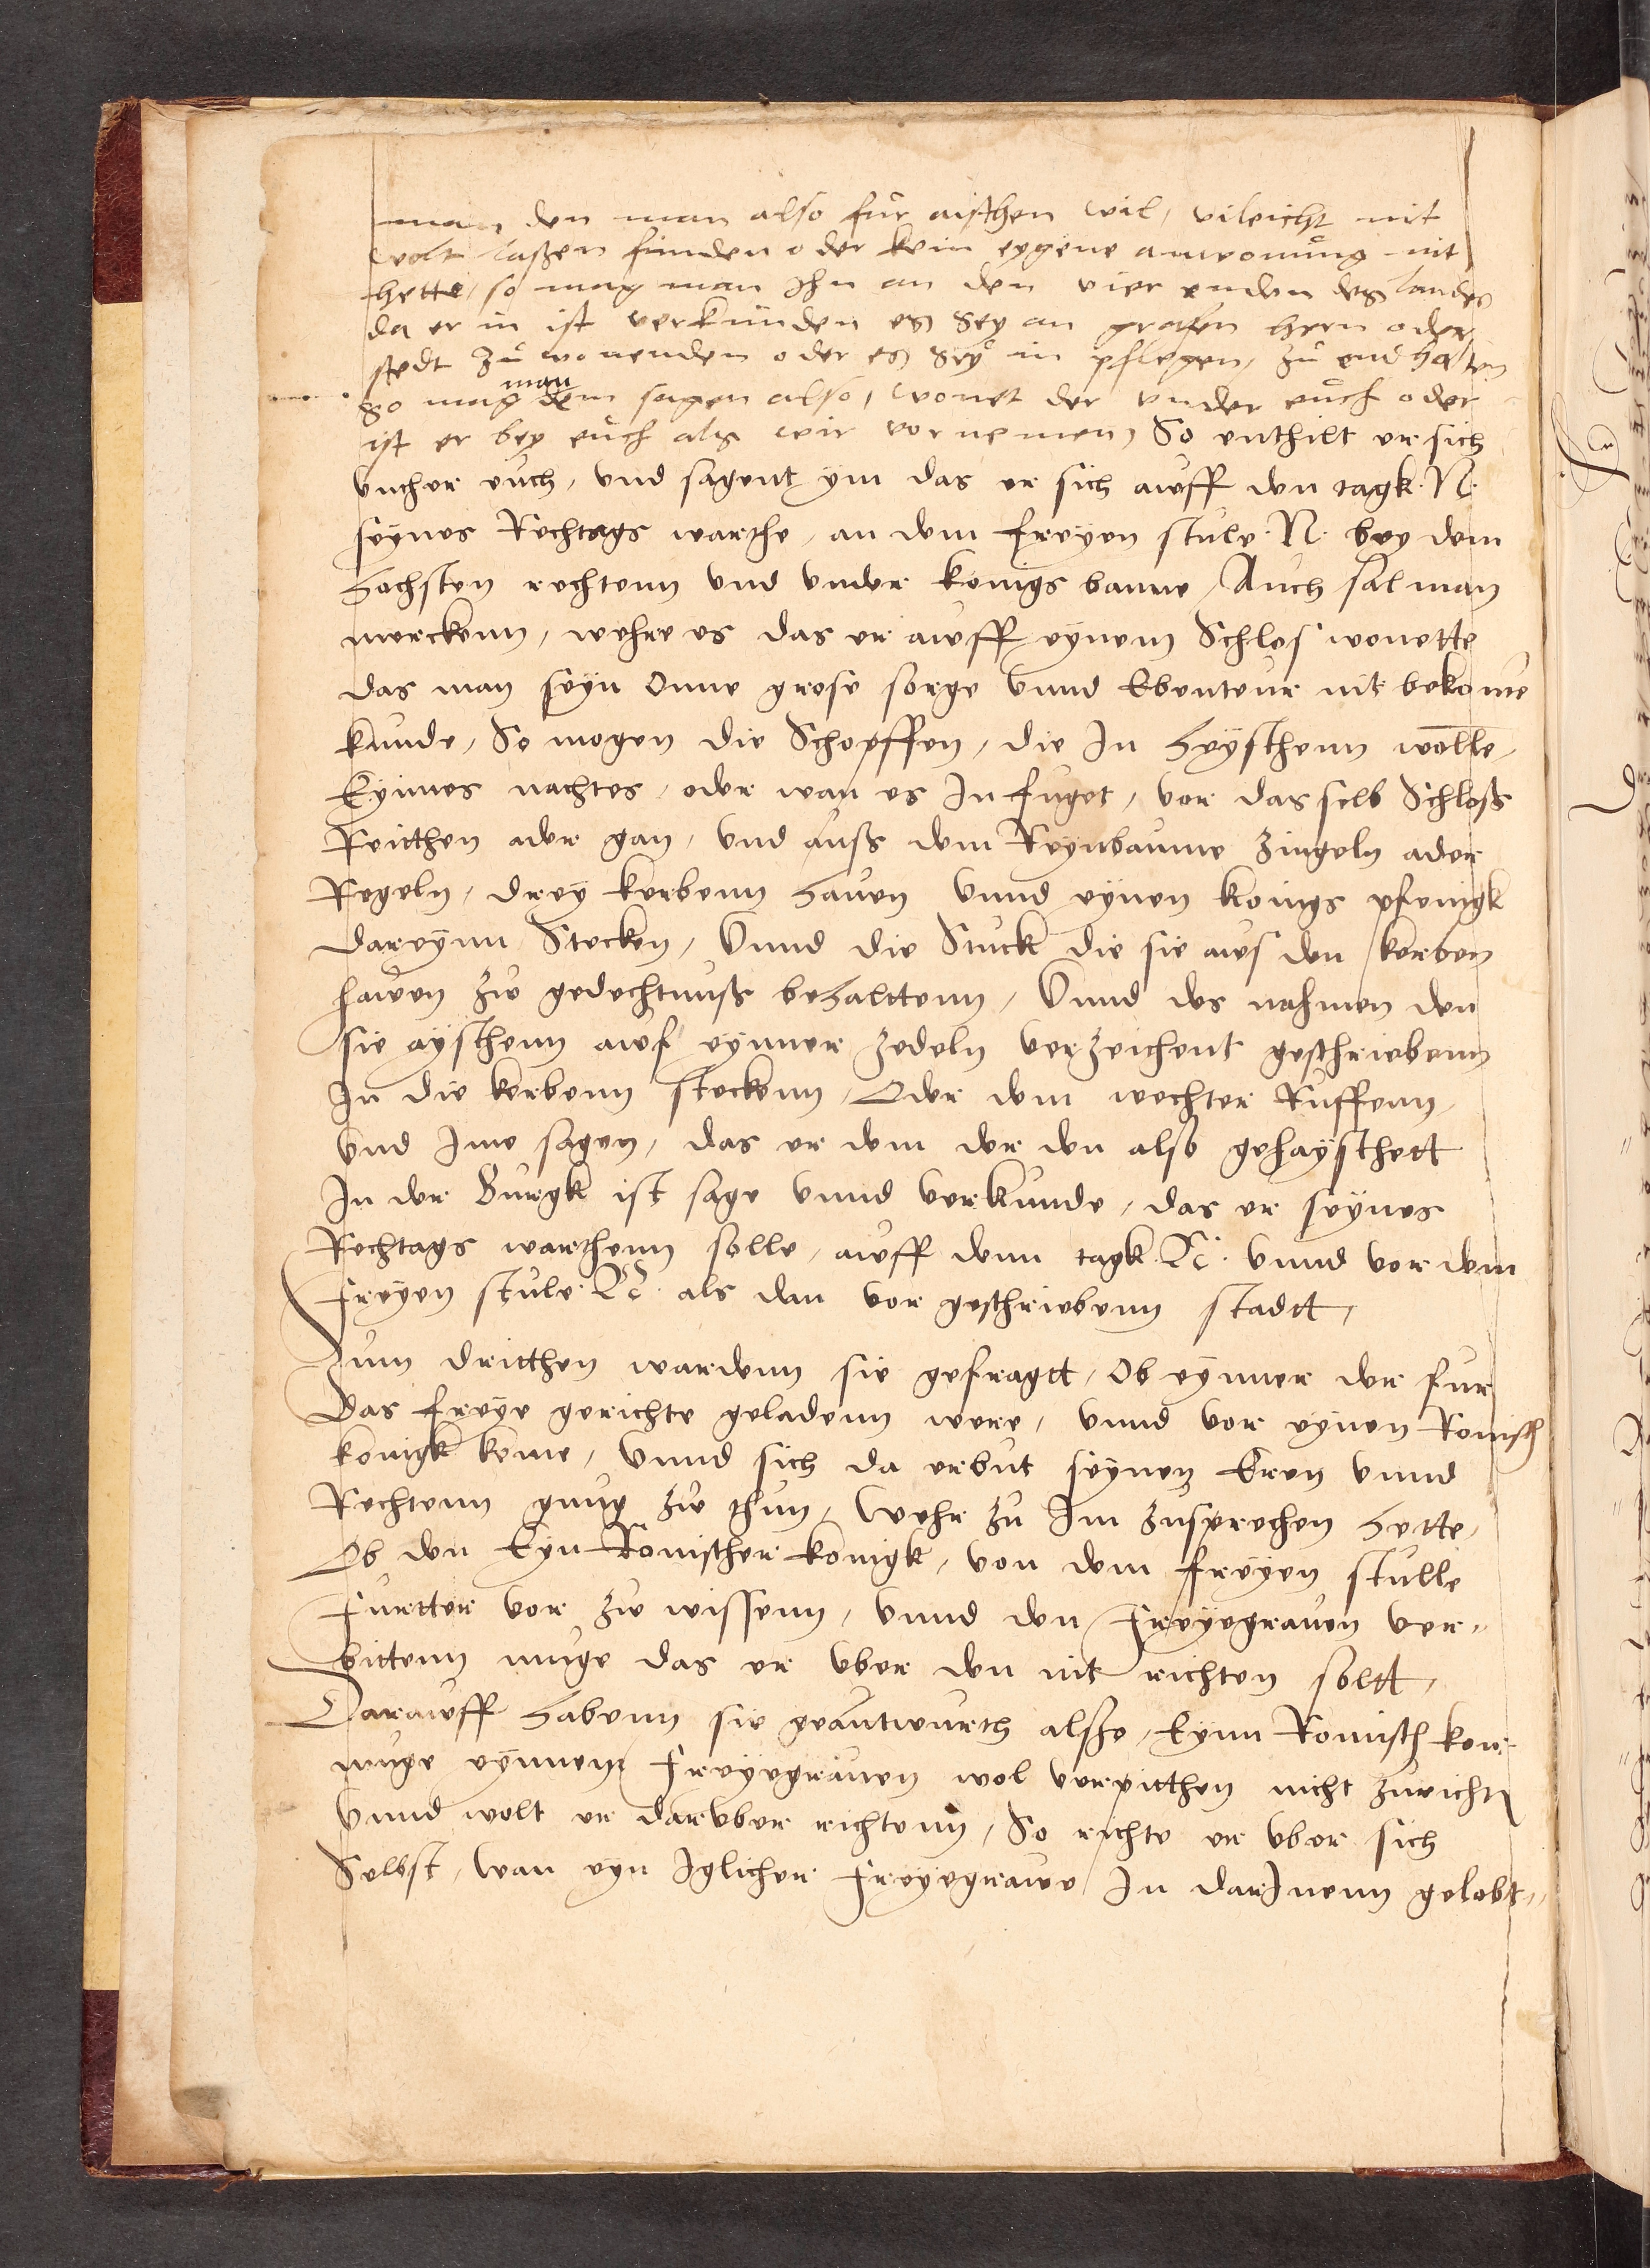 man den man also fur aischen wil, vileicht nit
wolt laßen finden oder kein eygene anwonung nit
hette, so mag man Ihn an den vier enden des landes
da er in ist verkunden es sey an grafen hern oder
stedt zu wonenden oder es sey in pflegen, zu endhalten
man
so mag dem sagen also, wonet der vnder euch oder
ist er bey euch als wir vornemen, So enthilt er sich
vnther euch, vnd sagent ym das er sich auff den tagk. N.
seynes Rechtags warthe, an dem freyen stule. N. bey dem
hochsten rechtenn vnd vnder konigs banne, Auch sal man
merckenn, wehre es das er auff eynem Schlos wonette
das man seyn Onne grose sorge vnnd Ebenteur nit bekome
kunde, So mogen die Schopffen, die In heysthenn wolle,
Eynnes nachtes, oder wan es In fuget, vor das selb Schloß
Reitthen oder gan, vnd auß dem Reynbaume zingeln ader
Regeln, drey kerbenn hauen vnnd eynen konigs pfenigk
dareynn Stecken, Vnnd die Stuck die sie aus den kerben
hauen zu gedechtnuß behalttenn, Vnnd des nahmen den
sie aysthenn auf eynner zedeln verzeichent geschriebenn
In die kerbenn steckenn, Oder dem wechter Ruffenn,
Vnd Ime sagen, das er dem der den also gehaysthett
In der Burgk ist sage vnnd verkunde, das er seynes
Rechtags warthenn solle, auff denn tagk. N. vnnd vor dem
freyen stule. N. als dan vor geschriebenn stadtt,
Zum dritthen wardenn sie gefragtt, Ob eynner der fur
Das freye gerichte geladenn were, vnnd vor eynen Romisch
konigk kome, Vnnd sich da erbut seynen Eren vnnd
Rechtenn gnug zu thun, Wehr zu Im zusprechen hette,
Ob den Eyn Romischer konigk, von dem freyen stulle
furtter vor zu wissenn, vnnd den freyegrauen ver„
bittenn muge das er vber den nit richten soltt,
Darauff habenn sie geantwurth also, Eynn Romisch kon:
muge eynnem freyegrauen wol verpitthen nicht zurichtn
Vnnd wolt er daruber richtenn, So richte er vber sich
Selbst, wan eyn Iglicher freyegraue In darInnenn gelobt„